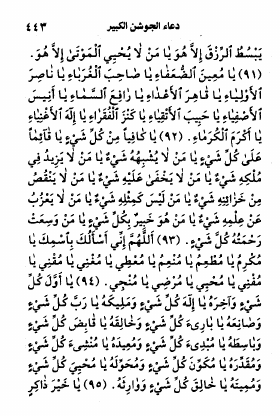 دعاء الجوشن الكبير ٤٤٣
يَبْسُطُ الرِّزْقَ إِلَّا هُوَ يَا مَنْ لَا يُحْيِي الْمَوْتَىٰ إِلَّا هُوَ.
(٩١) يَا مُعِينَ الضُّعَفَاءِ يَا صَاحِبَ الْغُرَبَاءِ يَا نَاصِرَ
الْأَوْلِيَاءِ يَا قَاهِرَ الْأَعْدَاءِ يَا رَافِعَ السَّمَاءِ يَا أَنِيسَ
الْأَصْفِيَاءِ يَا حَبِيبَ الْأَتْقِيَاءِ يَا كَنْزَ الْفُقَرَاءِ يَا إِلَٰهَ الْأَغْنِيَاءِ
يَا أَكْرَمَ الْكُرَمَاءِ. (٩٢) يَا كَافِياً مِنْ كُلِّ شَيْءٍ يَا قَائِماً
عَلَىٰ كُلِّ شَيْءٍ يَا مَنْ لَا يُشْبِهُهُ شَيْءٌ يَا مَنْ لَا يَزِيدُ فِي
مُلْكِهِ شَيْءٌ يَا مَنْ لَا يَخْفَىٰ عَلَيْهِ شَيْءٌ يَا مَنْ لَا يَنْقُصُ
مِنْ خَزَائِنِهِ شَيْءٌ يَا مَنْ لَيْسَ كَمِثْلِهِ شَيْءٌ يَا مَنْ لَا يَعْزُبُ
عَنْ عِلْمِهِ شَيْءٌ يَا مَنْ هُوَ خَبِيرٌ بِكُلِّ شَيْءٍ يَا مَنْ وَسِعَتْ
رَحْمَتُهُ كُلَّ شَيْءٍ. (٩٣) اَللَّهُمَّ إِنِّي أَسْأَلُكَ بِاسْمِكَ يَا
مُكْرِمُ يَا مُطْعِمُ يَا مُنْعِمُ يَا مُعْطِي يَا مُغْنِي يَا مُقْنِي يَا
مُفْنِي يَا مُحْيِي يَا مُرْضِي يَا مُنْجِي. (٩٤) يَا أَوَّلَ كُلِّ
شَيْءٍ وَآخِرَهُ يَا إِلَٰهَ كُلِّ شَيْءٍ وَمَلِيكَهُ يَا رَبَّ كُلِّ شَيْءٍ
وَصَانِعَهُ يَا بَارِئَ كُلِّ شَيْءٍ وَخَالِقَهُ يَا قَابِضَ كُلِّ شَيْءٍ
وَبَاسِطَهُ يَا مُبْدِئَ كُلِّ شَيْءٍ وَمُعِيدَهُ يَا مُنْشِئَ كُلِّ شَيْءٍ
وَمُقَدِّرَهُ يَا مُكَوِّنَ كُلِّ شَيْءٍ وَمُحَوِّلَهُ يَا مُحْيِيَ كُلِّ شَيْءٍ
وَمُمِيتَهُ يَا خَالِقَ كُلِّ شَيْءٍ وَوَارِثَهُ. (٩٥) يَا خَيْرَ ذَاكِرٍ